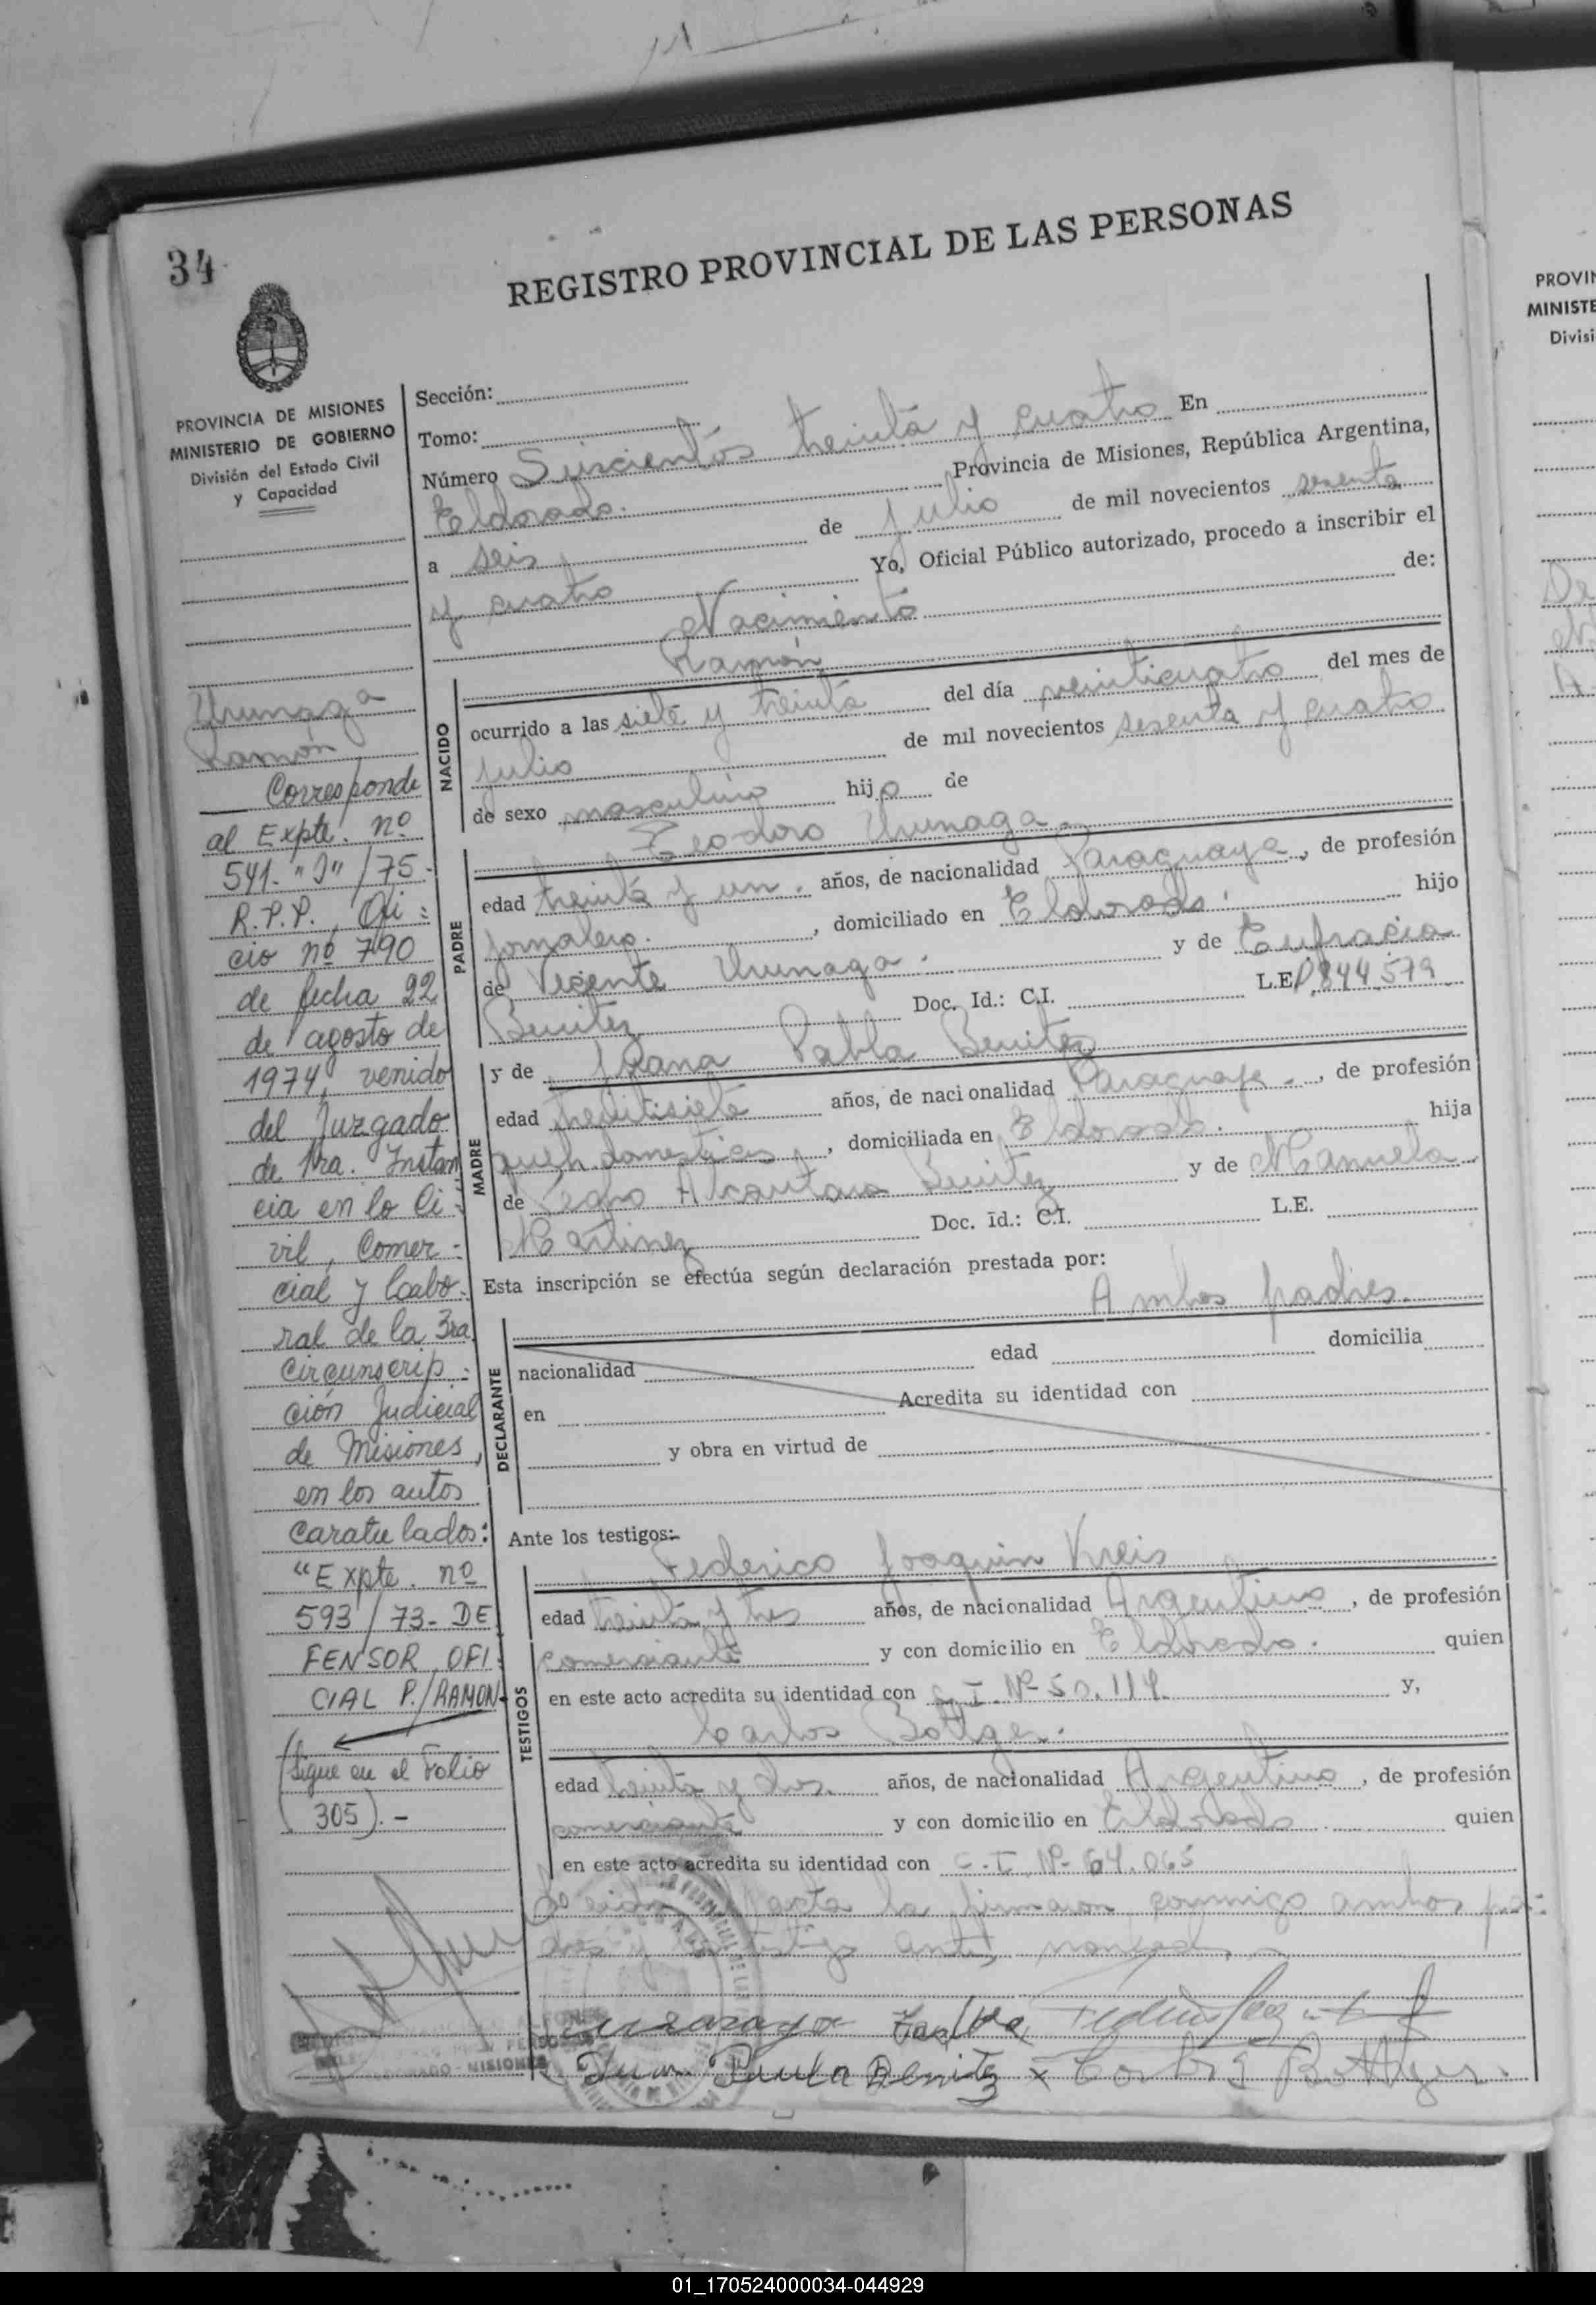 34
REGISTRO PROVINCIAL DE LAS PERSONAS
PROVINCIA DE MISIONES
MINISTERIO DE GOBIERNO
División del Estado Civil
y Capacidad
Urunaga
Ramón
Corresponde
al Expte. nº
541-"J"/75-
R.P.P., Ofi-
cio nº 790
de fecha 22
de agosto de
1974, venido
del Juzgado
de 1ra. Instan
cia en lo Ci-
vil, Comer-
cial y Labo-
ral de la 3ra
Circunscrip-
ción Judicial
de Misiones,
en los autos
caratulados:
"Expte. nº
593/73- DE
FENSOR OFI-
CIAL P./RAMON
(Sigue en el Folio
305).-
Sección:
Tomo:
Número treinta y cuatro En
Eldorado. Provincia de Misiones, República Argentina,
a seis de julio de mil novecientos sesenta
y cuatro Yo, Oficial Público autorizado, procedo a inscribir el
Nacimiento de:
Ramón
NACIDO
ocurrido a las siete y treinta del día veinticuatro del mes de
julio de mil novecientos sesenta y cuatro
de sexo masculino hijo de
Teodoro Urunaga.
PADRE
edad treinta y un. años, de nacionalidad Paraguaya, de profesión
jornalero. , domiciliado en Eldorado. hijo
de Vicente Urunaga. y de Eufracia
Benitez Doc. Id.: C.I. L.E. 844.579
y de Juana Pabla Benitez
MADRE
edad treintisiete años, de nacionalidad Paraguaya-, de profesión
queh. domesticos, domiciliada en Eldorado. hija
de Pedro Alcantara Benitez y de Manuela
Martinez Doc. Id.: C.I. L.E.
Esta inscripción se efectúa según declaración prestada por:
Ambos padres.
DECLARANTE
nacionalidad edad domicilia
en Acredita su identidad con
y obra en virtud de
Ante los testigos:-
Federico Joaquin Kreis
TESTIGOS
edad treinta y tres años, de nacionalidad Argentino, de profesión
comerciante y con domicilio en Eldorado. quien
en este acto acredita su identidad con C.I. Nº 50.114. y,
Carlos Bottger.
edad treinta y dos. años, de nacionalidad Argentino, de profesión
comerciante y con domicilio en Eldorado quien
en este acto acredita su identidad con C.I. Nº 64.065
Leida acta la firmaron conmigo ambos pa-
dres y testigos antes
Benitez x Carlos Bottger.
PROVIN
MINISTE
Divisi
01_170524000034-044929